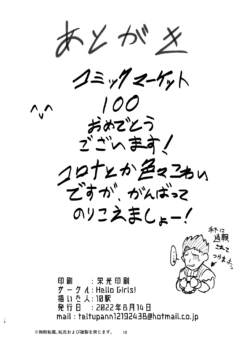 あとがき
コミックマーケット
100
おめでとう
ございます!
コロナとか色々こわい
ですが、がんばって
のりこえましょー!
印刷 : 栄光印刷
サークル : Hello Girls!
描いた人 : 10駅
発行日 : 2022年8月14日
mail : taitupann12192438@hotmail.co.jp
※無断転載、転売および複製を禁じます。